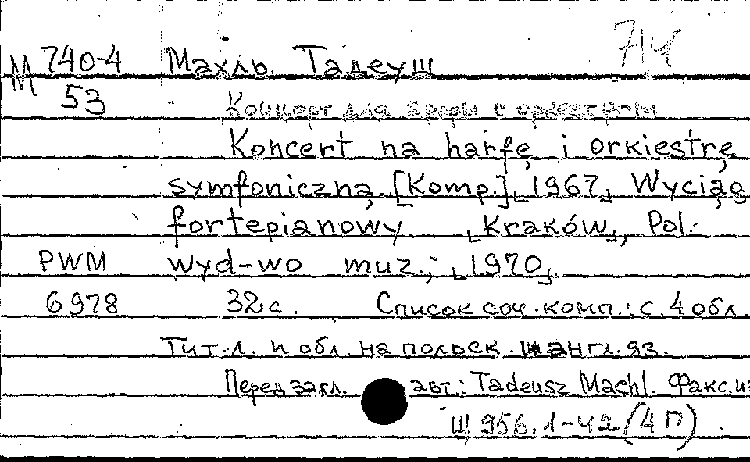 М 740-4 Махль Тадеуш 714
53 Концерт для арфы с оркестром
Koncert na harfę i orkiestrę
symfoniczną. [Komp.] 1967. Wyciąg
fortepianowy. Kraków, Pol.
PWM wyd-wo muz., 1970.
6978 32 с. Список соч. комп.: с. 4 обл.
Тит. л. и обл. на польск. и англ. яз.
Перед загл. авт.: Tadeusz Machl. Факс. из
Щ 956.1-42 (4П).